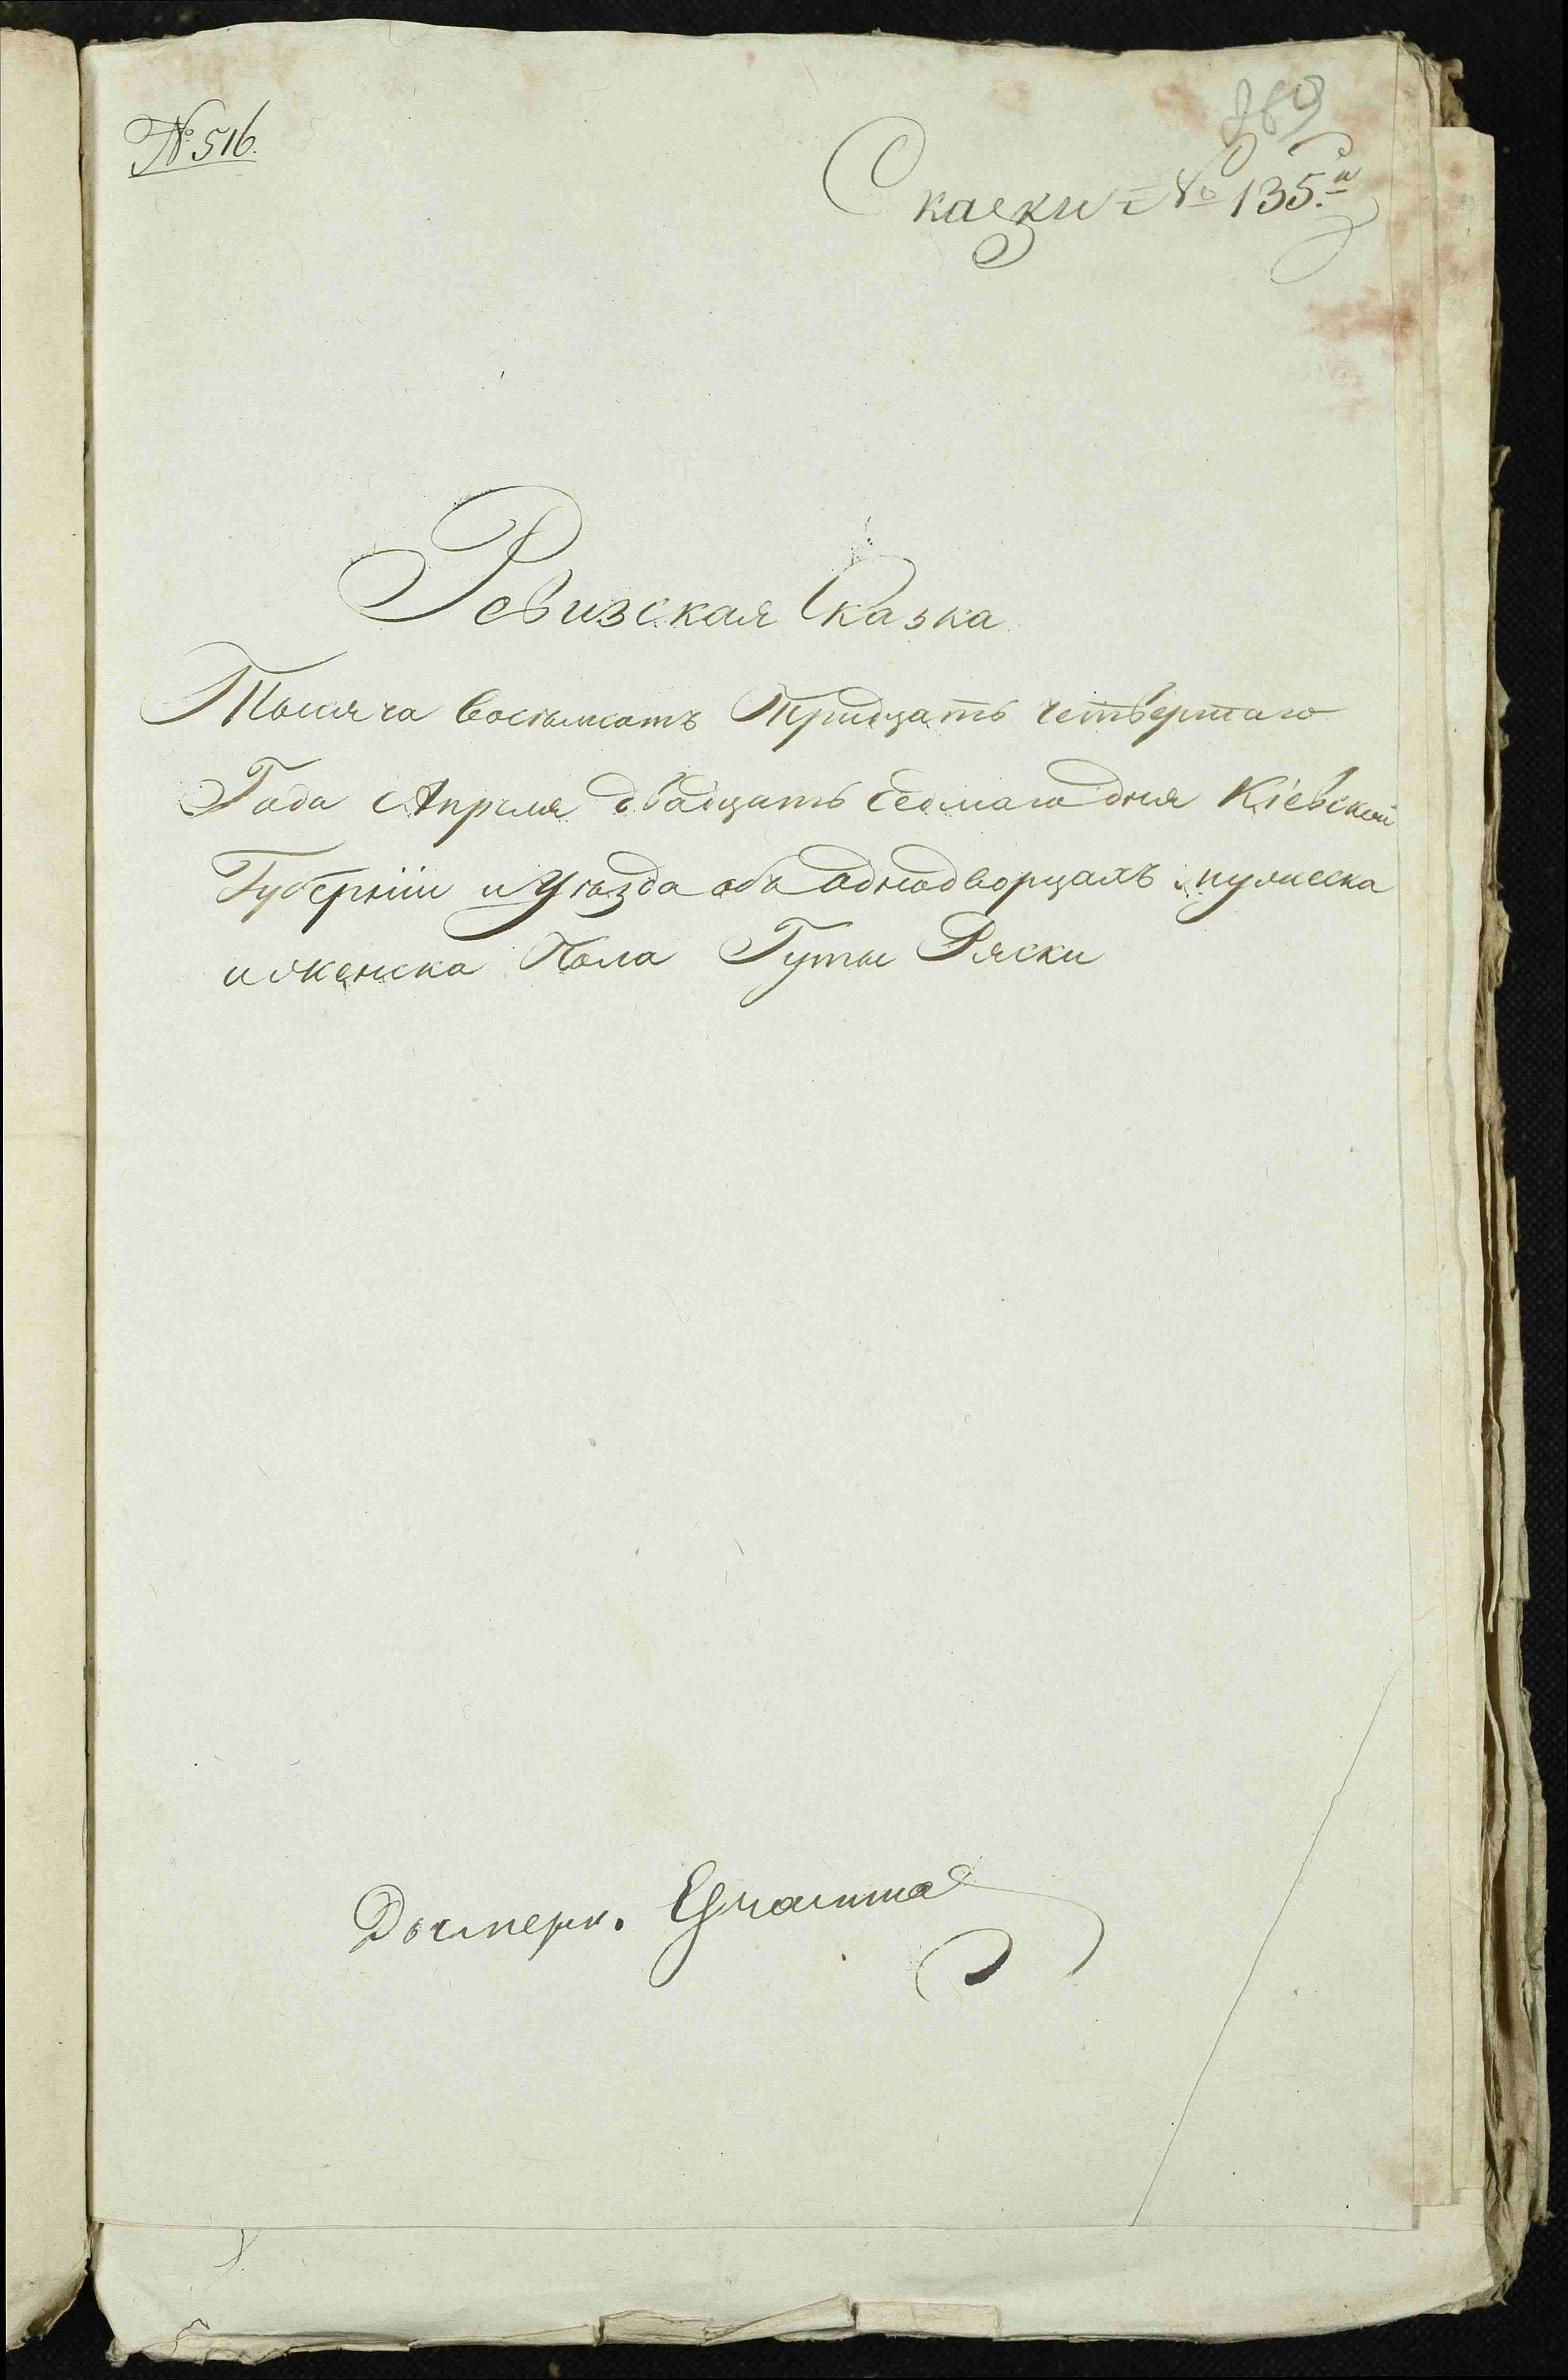 № 516.
369
Сказки № 135.й
Ревизская Сказка
Тысяча восѣмсотъ Тридцать четвертаго
Года Апреля двадцать седмаго дня Кіевской
Губерніи и Уѣзда объ однодворцахъ мужеска
и женска Пола Гуты Ряски